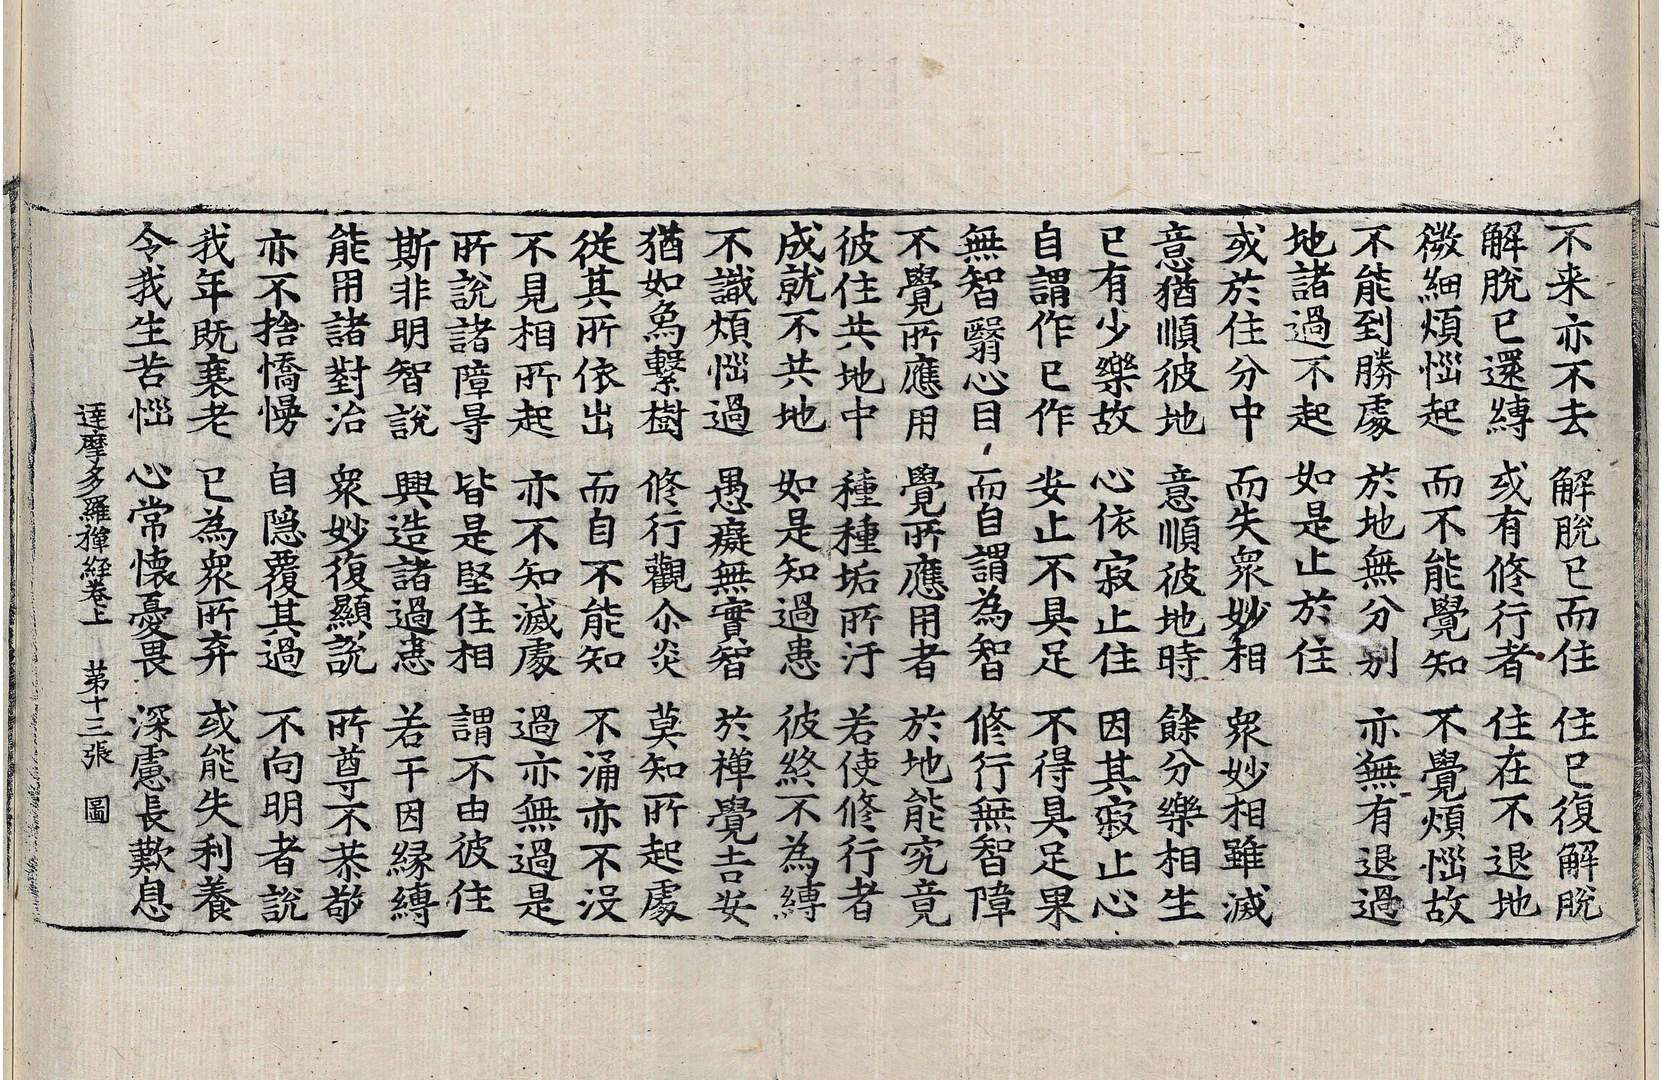 不来亦不去 解脫已而住 住已復解脫
解脫已還縛 或有修行者 住在不退地
微細煩惱起 而不能覺知 不覺煩惱故
不能到勝處 於地無分別 亦無有退過
地諸過不起 如是止於住
或於住分中 而失衆妙相 衆妙相雖滅
意猶順彼地 意順彼地時 餘分樂相生
已有少樂故 心依寂止住 因其寂止心
自謂作已作 安止不具足 不得具足果
無智翳心目 而自謂為智 修行無智障
不覺所應用 覺所應用者 於地能究竟
彼住共地中 種種垢所汙 若使修行者
成就不共地 如是知過患 彼終不為縛
不識煩惱過 愚癡無實智 於禅覺吉安
猶如鳥繫樹 修行觀尒炎 莫知所起處
從其所依出 而自不能知 不涌亦不没
不見相所起 亦不知滅處 過亦無過是
所說諸障㝵 皆是堅住相 謂不由彼住
斯非明智說 興造諸過患 若干因縁縛
能用諸對治 衆妙復顯說 所尊不恭敬
亦不捨憍慢 自隠覆其過 不向明者說
我年既衰老 已為衆所弃 或能失利養
令我生苦惱 心常懐憂畏 深慮長歎息
達摩多羅禅經卷上 苐十三張 圖